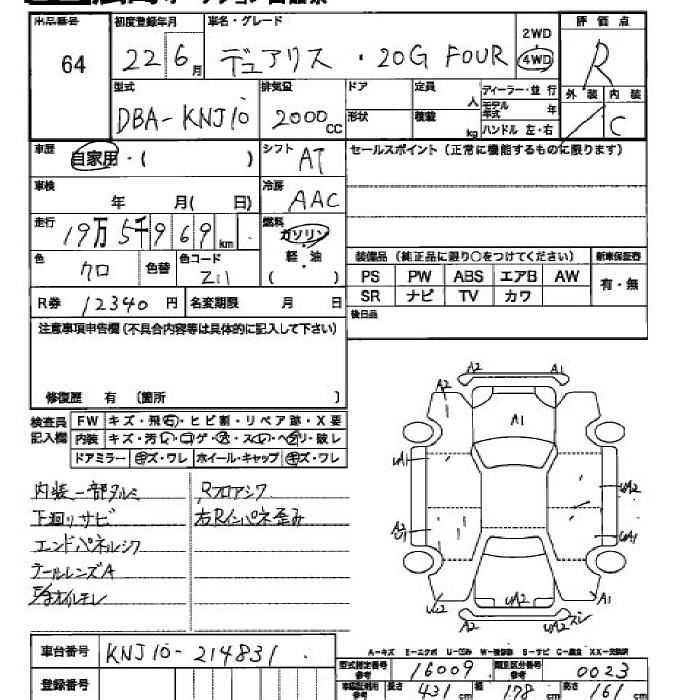 出品番号 初度登録年月 車名・グレード 2WD 評価点
64 22 6月 デュアリス・20G FOUR 4WD R
型式 排気量 ドア 定員 人 ディーラー・並行 外装 内装
DBA-KNJ10 2000cc 形状 積載 kg モデル年式 年 C
ハンドル 左・右
車歴 自家用・( ) シフト AT セールスポイント(正常に機能するものに限ります)
車検 年 月( 日) 冷房 AAC
走行 19万5千969km 燃料 ガソリン
軽・油
( )
色 クロ 色替 色コード Z11
装備品(純正品に限り○をつけてください) 新車保証書
PS PW ABS エアB AW 有・無
SR ナビ TV カワ
R券 12340円 名変期限 月 日 後日品
注意事項申告欄(不具合内容等は具体的に記入して下さい)
修復歴 有 〔箇所 〕
検査員記入欄
FW キズ・飛石・ヒビ割・リペア跡・X要
内装 キズ・汚レ・コゲ・穴・スレ・ヘタリ・破レ
ドアミラー キズ・ワレ ホイール・キャップ キズ・ワレ
内装一部タルミ Rフロアシワ
下廻リサビ 右Rインパネ歪み
エンドパネルシワ
テールレンズA
オイルモレ
A2 A1
A2 A1
A1
UA1 UA2
A2 UA1
UA2
U2 A1
A2 UA2 スレ
A-キズ E-エクボ U-凹み W-補修跡 S-サビ C-腐食 XX-交換済
車台番号 KNJ10-214831
型式指定番号参考 16009 類別区分番号参考 0023
登録番号
車検証測用参考 長さ 431cm 幅 178cm 高さ 161cm